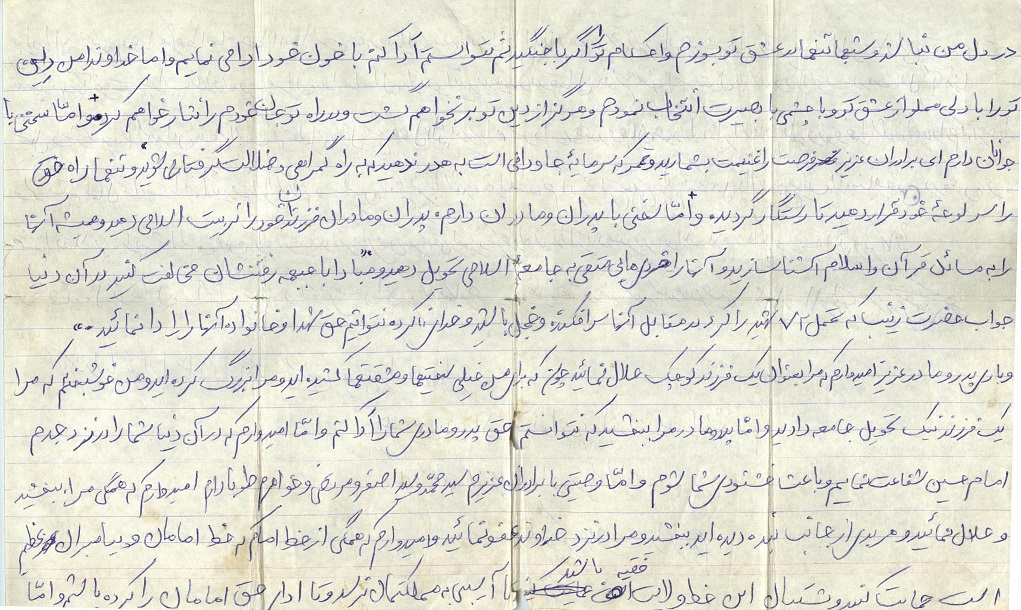 در دل من نباشد و شبها تنها در عشق تو بسوزم و احکام تو اگر با جنگیدنم نتوانستم آدا کنم با خون خود ادا می نمایم و اما خداوندا من دین
تو را با دلی مملو از عشق تو و با چشمی با بصیرت انتخاب نمودم و هرگز از دین تو بر نخواهم گشت و در راه تو جان خودم را نثار خواهم کرد و امّا سخنی با
جوانان دارم ای برادران عزیز فرصت را غنیمت بشمارید و عمر که سرمایهٔ جاودانی است به هدر ندهید که به راه گمراهی و ضلالت گرفتار می شوید و تنها راه حق
را سر لوحهٔ خود قرار دهید تا رستگار گردید و امّا سخنی با پدران و مادران دارم پدران و مادران فرزندان خود را تربیت اسلامی دهید و همیشه آنها
را به مسائل قرآن و اسلام آشنا سازید و آنها را متقی به جامعه اسلامی تحویل دهید و مبادا با جبهه رفتنشان مخالفت کنید در آن دنیا
جواب حضرت زینب که تحمل ۷۲ شهید را کرد در مقابل آنها سرافکنده و خجل باشید و خدای نکرده نتوانیم حق شهدا و خانواده آنها را ادا نمائید
و با پدر و مادر عزیز امیدوارم که مرا بعنوان یک فرزند کوچک حلال نمائید چون که برای من خیلی سختیها و مشقتها کشیده اید و مرا بزرگ کرده اید و من خوشبختم که مرا
یک فرزند نیک تحویل جامعه دادید و امّا پدر و مادر مرا ببخشید که نتوانستم حق پدر و مادری شما را آدا کنم و امّا امیدوارم که در آن دنیا شما را در نزد جدم
امام حسین شفاعت نمایم و باعث خشنودی شما شوم و امّا وصیتی با برادران عزیزم سید محمّد و سید اصغر و مرتضی و خواهرم طوبا دارم امیدوارم که همگی مرا ببخشید
و حلال نمائید و هر بدی از جانب بنده دیده اید ببخشید و مرا در نزد خداوند عفو نمائید و امیدوارم که همگی از خط امام که خط امامان و پیامبران عظیم
است حمایت کنید و پشتیبان این خط و ولایت فقیه باشید تا آسیبی به مملکتمان نرسد و تا ادای حق امامان را کرده باشیم و امّا